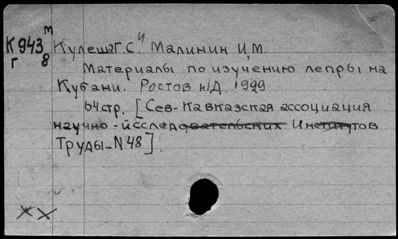 К943 м
г 8
Кулеша Г.С. и Малинин И.М.
Материалы по изучению лепры на
Кубани. Ростов н/Д. 1929
64 стр. [Сев-Кавказская ассоциация
научно-исследовательских Институтов
Труды...N48].